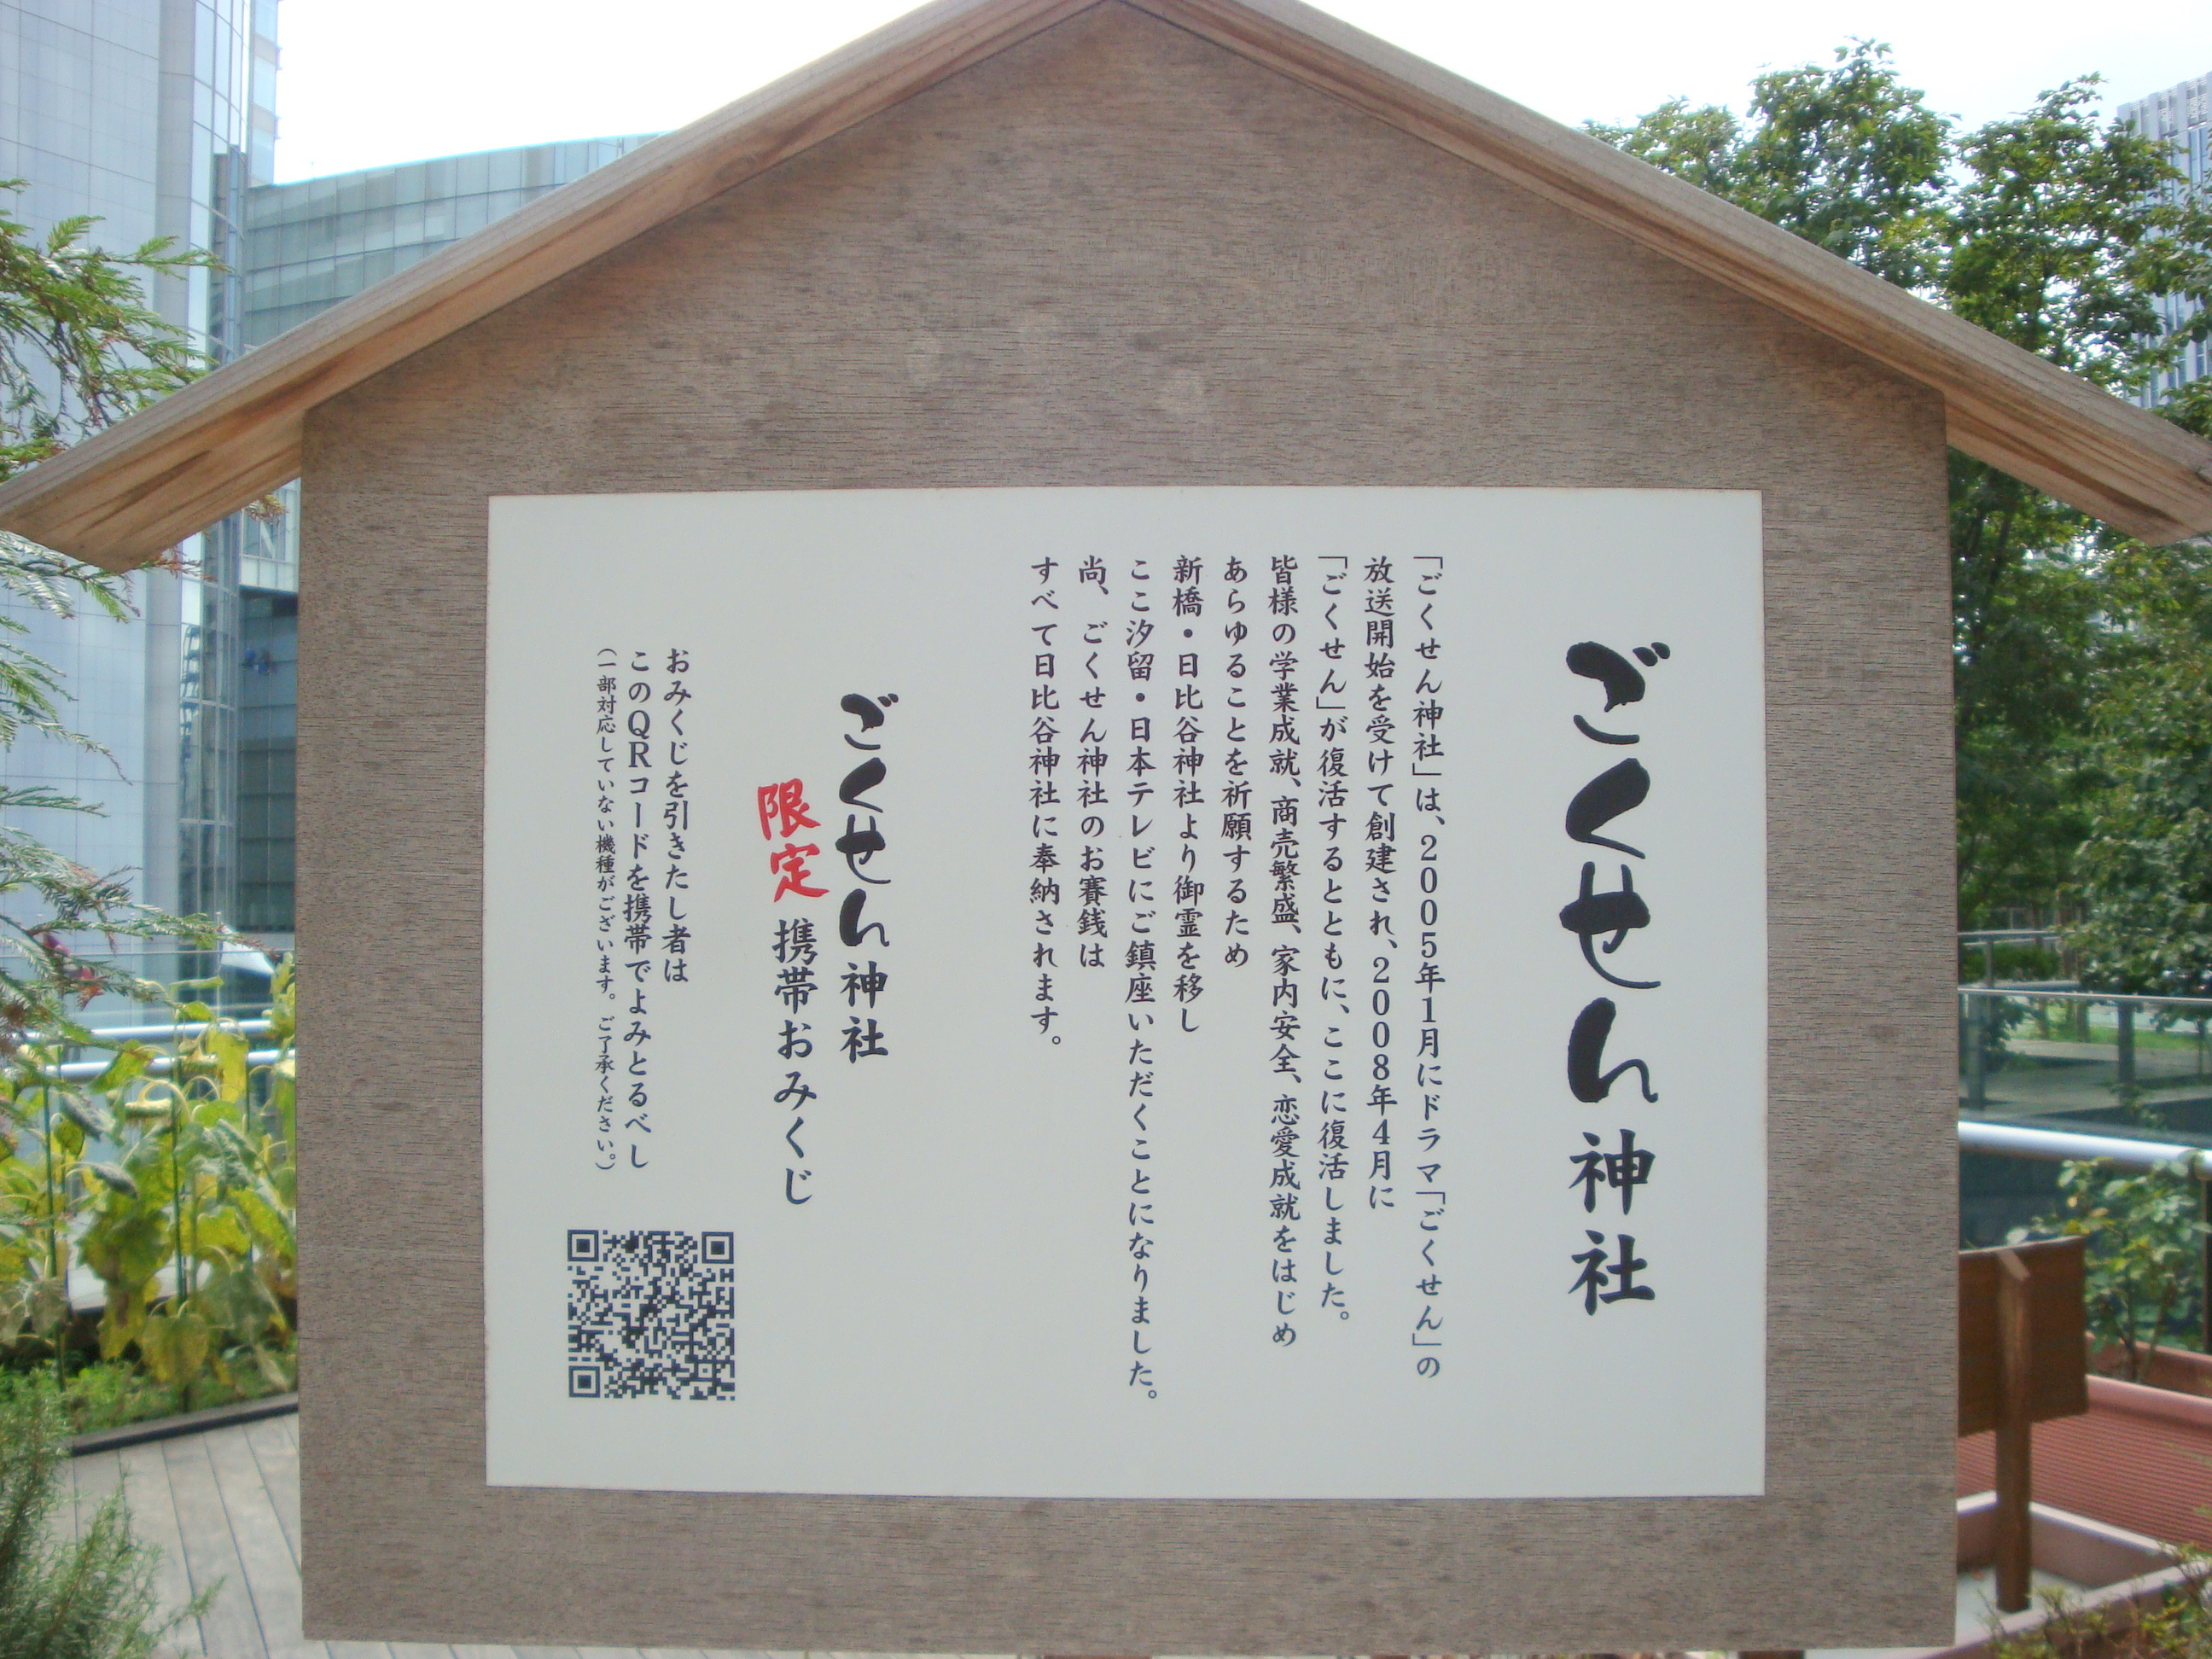 ごくせん神社
「ごくせん神社」は、2005年1月にドラマ「ごくせん」の
放送開始を受けて創建され、2008年4月に
「ごくせん」が復活するとともに、ここに復活しました。
皆様の学業成就、商売繁盛、家内安全、恋愛成就をはじめ
あらゆることを祈願するため
新橋・日比谷神社より御霊を移し
ここ汐留・日本テレビにご鎮座いただくことになりました。
尚、ごくせん神社のお賽銭は
すべて日比谷神社に奉納されます。
ごくせん神社
限定 携帯おみくじ
おみくじを引きたし者は
このQRコードを携帯でよみとるべし
(一部対応していない機種がございます。ご了承ください。)